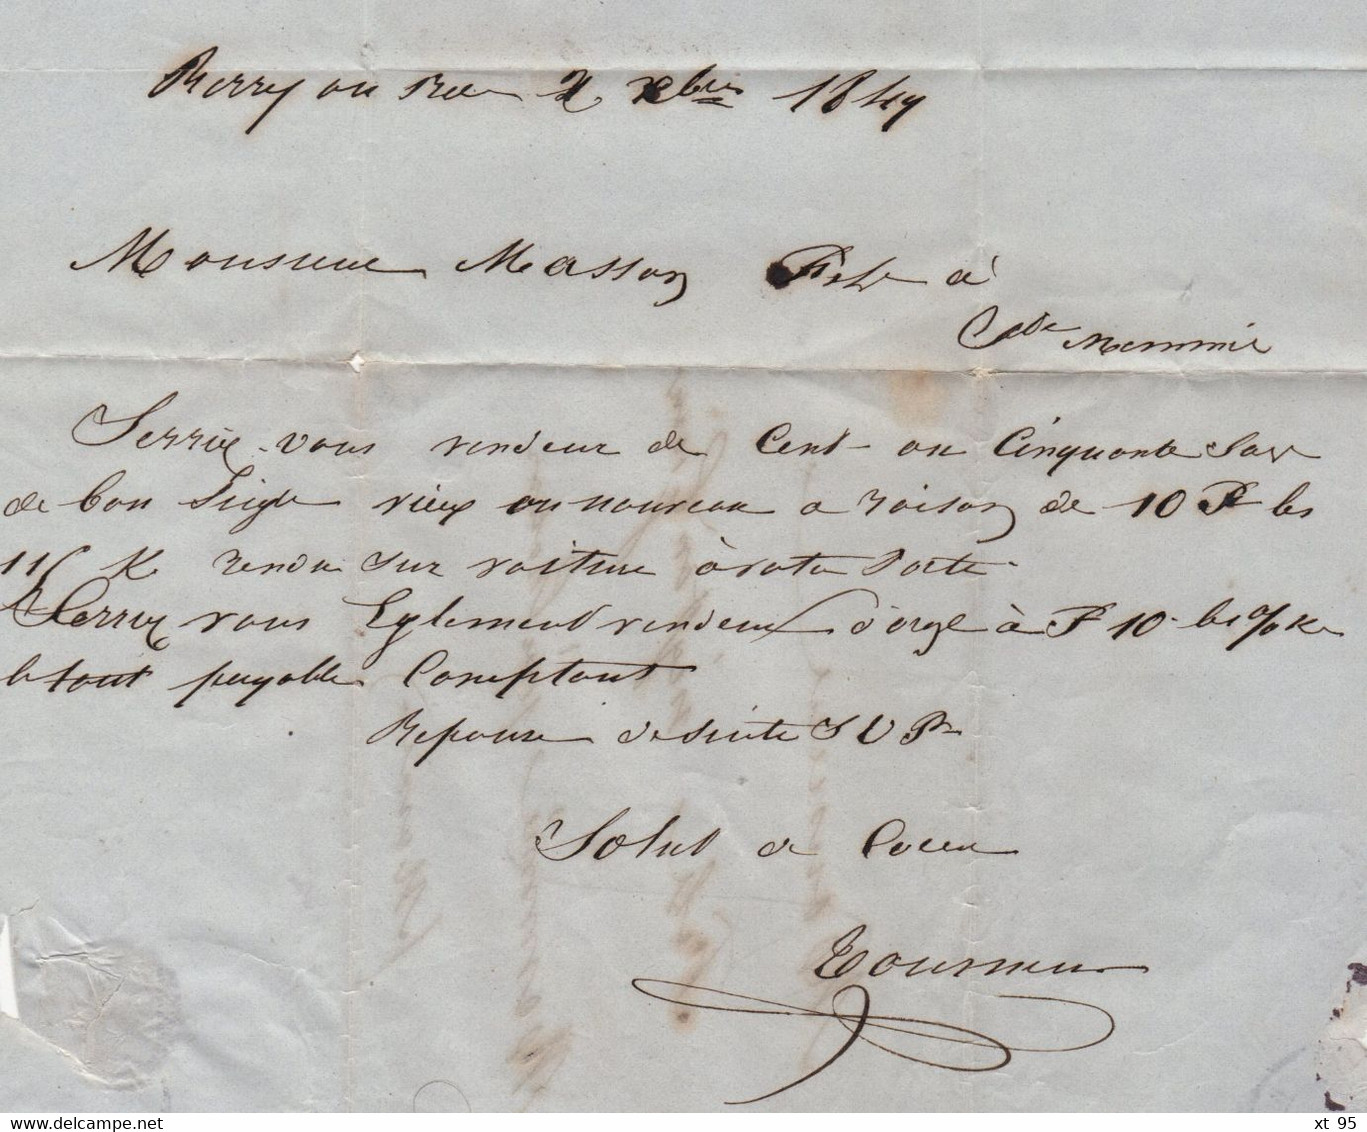 Berry au Bac 2 xbre 1849
Monsieur Masson Fils à
St Memmie
Serriez vous vendeur de Cent ou Cinquante Sax
de bon Seigle vieux ou nouveau a raison de 10 F les
115 K rendu sur voiture à votre Porte
Serriez vous Egalement vendeur d'orge à F 10 les % K
le tout payable Comptant
Reponse de suite S V P
Salut de Coeur
xt 95